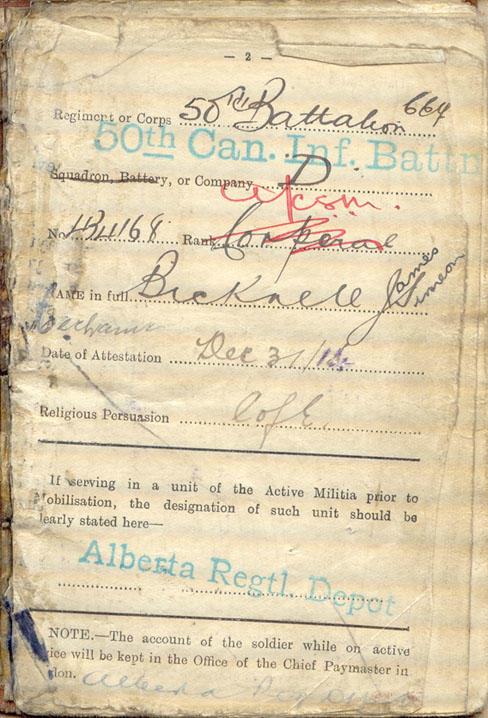 — 2 —
Regiment or Corps 50th Battalion 664
50th Can. Inf. Battn
Squadron, Battery, or Company D
No. Rank Corporal
NAME in full Bicknell James Simeon
Date of Attestation Dec 31/14
Religious Persuasion C of E.
If serving in a unit of the Active Militia prior to
Mobilisation, the designation of such unit should be
learly stated here—
Alberta Regtl. Depot
NOTE.—The account of the soldier while on active
ice will be kept in the Office of the Chief Paymaster in
don. Alberta